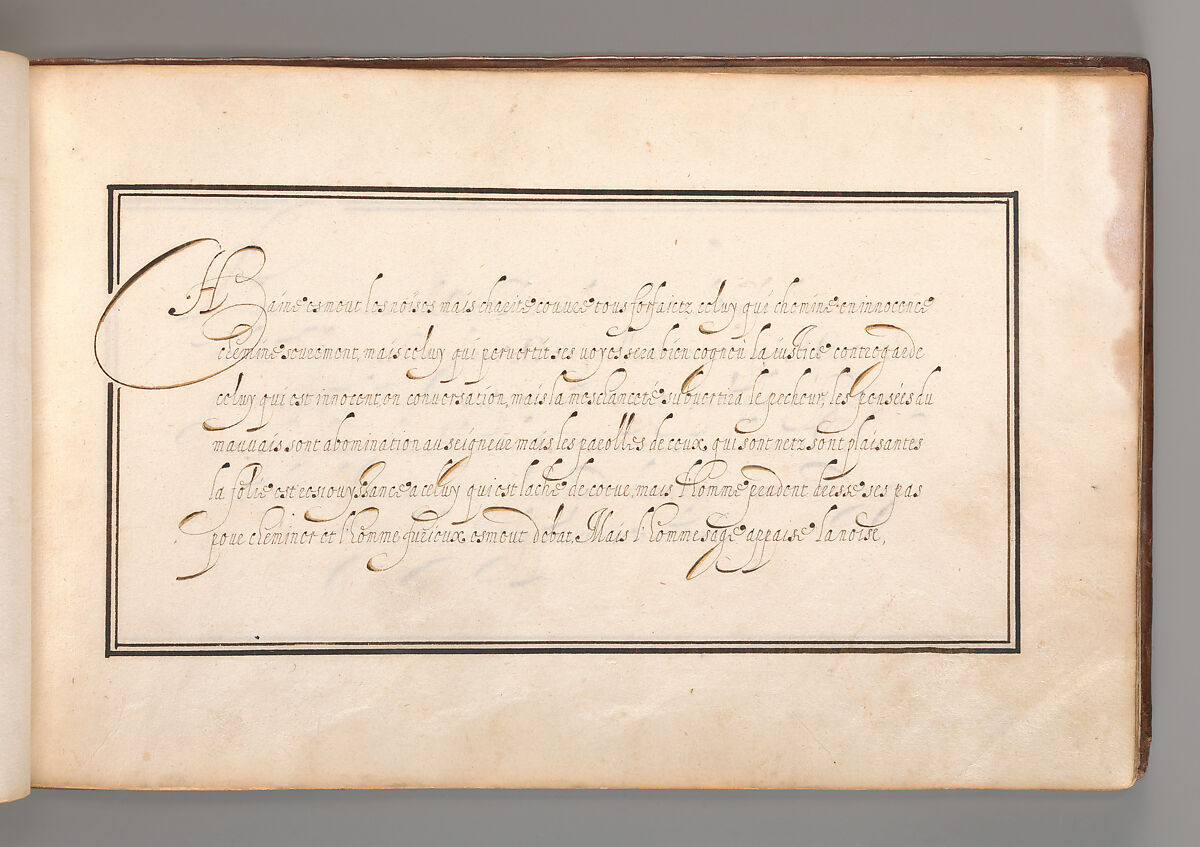 Haine esmeut les noises mais charité couvre tous forfaictz, celuy qui chemine en innocence
chemine seurement, mais celuy qui pervertit ses voyes sera bien cogneu la iustice contregarde
celuy qui est innocent, en conversation, mais la meschanceté subvertira le pecheur, les pensées du
mauvais sont abomination au seigneur mais les parolles de ceux, qui sont netz sont plaisantes
la folie est resiouyssance a celuy qui est lache de coeur, mais, l'homme prudent dresse ses pas
pour cheminer et l'homme furieux, esmeut debat, Mais l'homme sage appaise la noise,